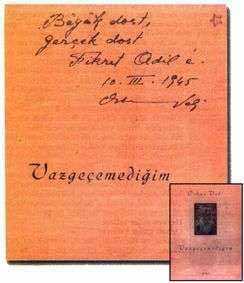 Büyük dost,
gerçek dost
Fikret Adil'e.
10. III. 1945
Orhan Veli
Vazgeçemediğim
Orhan Veli
Vazgeçemediğim